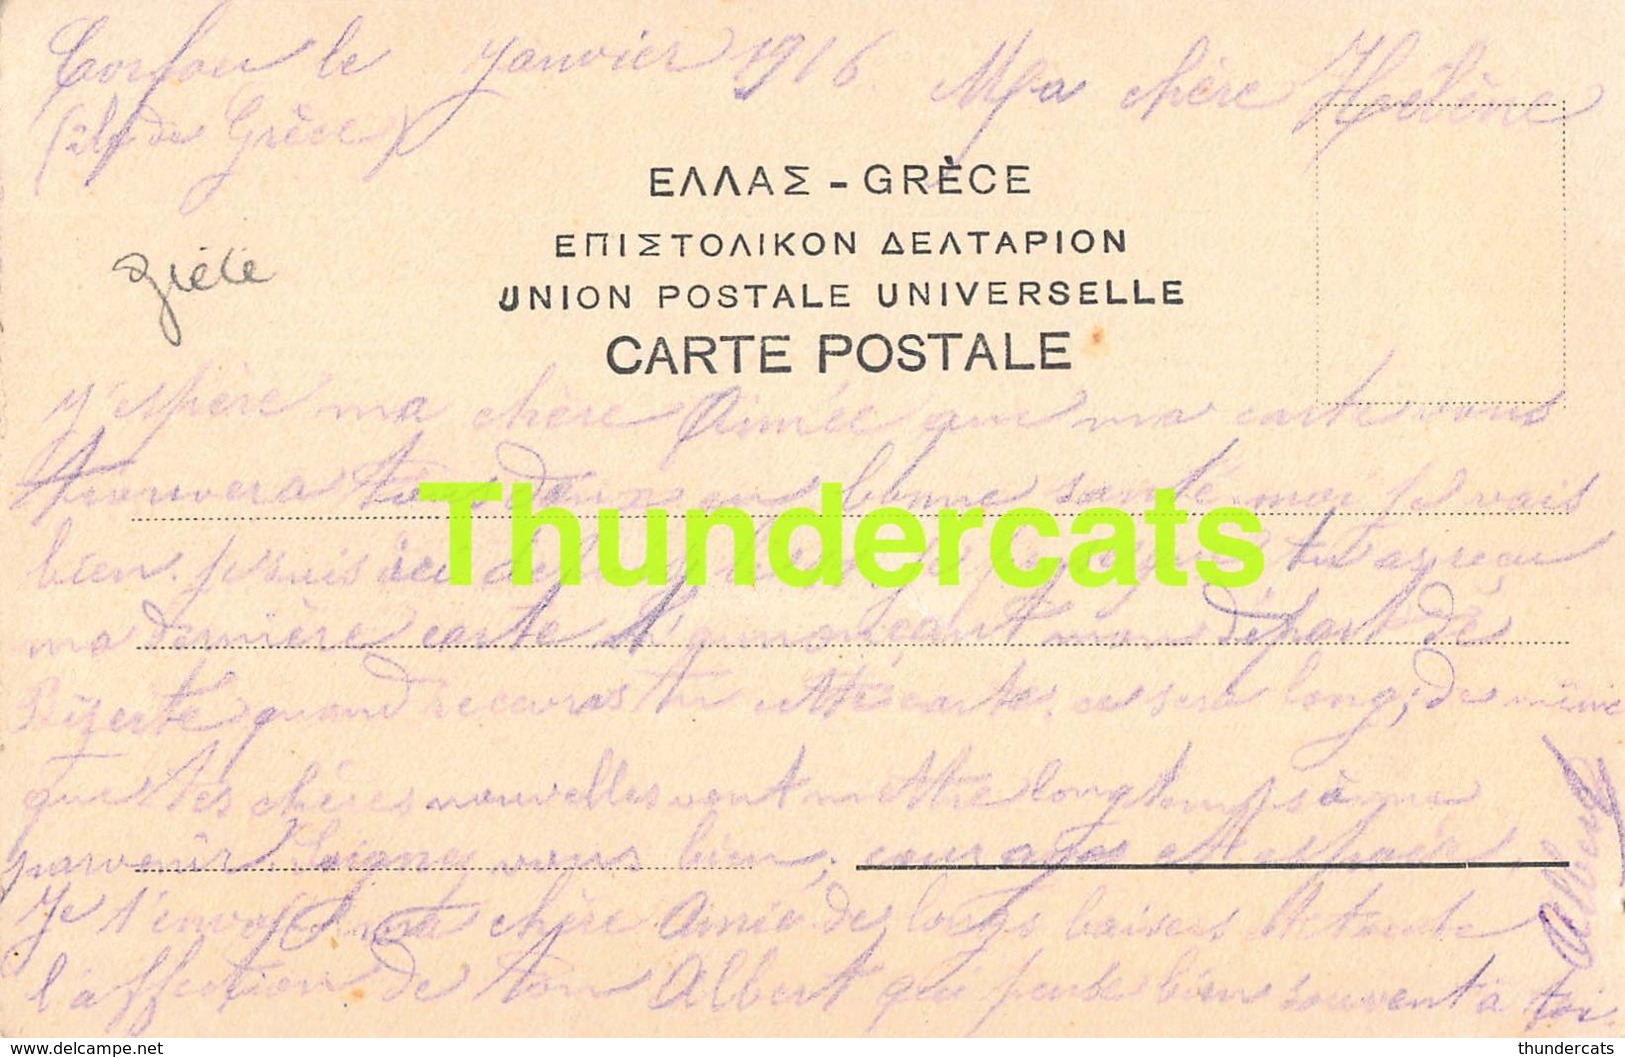 Corfou le Janvier 1916. Ma chère Hélène
(île de Grèce)
ΕΛΛΑΣ - GRÈCE
ΕΠΙΣΤΟΛΙΚΟΝ ΔΕΛΤΑΡΙΟΝ
UNION POSTALE UNIVERSELLE
CARTE POSTALE
grèce
J'espère ma chère Aimée que ma carte vous
trouvera tous deux en bonne santé moi je vais
Thundercats
bien. je suis ici depuis tu as reçu
ma dernière carte t'annonçant mon départ de
Bizerte quand recevras tu cette carte. ce sera long; de même
que tes chères nouvelles vont mettre longtemps à me
parvenir. Soignez vous bien; courage et espoir
Je t'envoie ma chère Aimée de longs baisers et toute
l'affection de ton Albert qui pense bien souvent à toi.
Albert
delcampe.net
thundercats